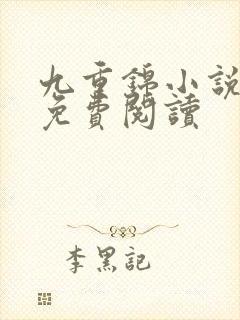 九重錦小說
免費閱讀
李黑記